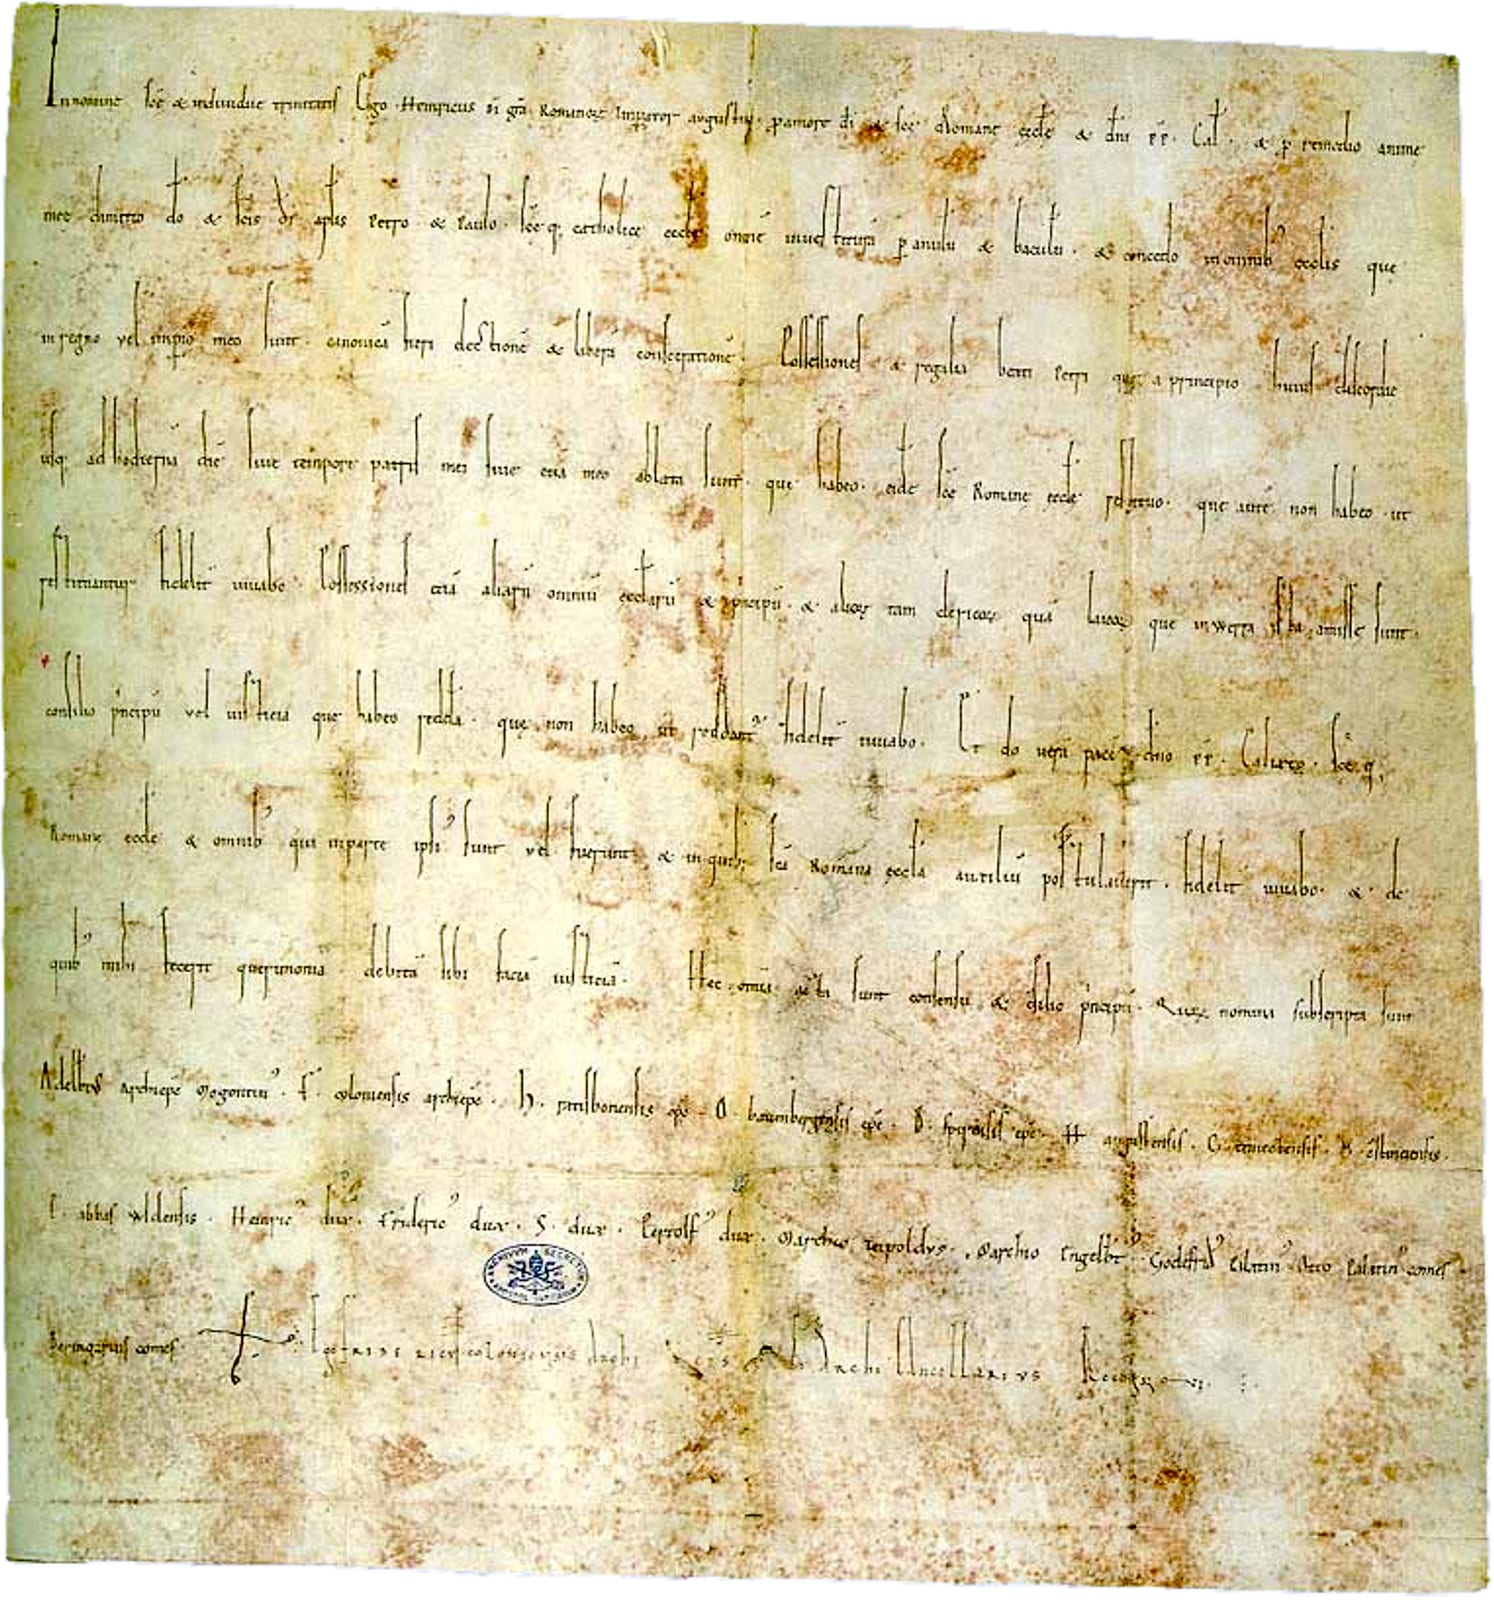 In nomine sċe & individue trinitatis Ego Heinricus di gra Romanoꝝ Imperator augustus p amore di & sċe Romane eccłe & dni pp. Cał. & p remedio anime
meę dimitto do & scis di apłis Petro & Paulo. sċeq; catholice eccłe omnē investiturā p anulū & baculū. & concedo in omnib; eccłis que
in regno vel impio meo sunt. canonicā fieri electionē & liberā consecrationē. Possessiones & regalia beati Petri que a principio huius discordie
usq; ad hodiernā diē sive tempore patris mei sive etiā meo ablata sunt. que habeo. eidē sċe Romane eccłe restituo. que autē non habeo ut
restituantur fidelit iuvabo. Possessiones etiā aliarū omniū eccłarū & pncipū. & alioꝝ tam clericoꝝ quā laicoꝝ que in werra ista amisse sunt.
consilio pncipū vel iusticia que habeo reddā. que non habeo ut reddant fidelit iuvabo. Et do verā pacē dno pp. Calixto. sċeq;
Romane eccłe & omnib; qui in parte ipsi sunt vel fuerunt & in quib; sċa Romana eccła auxiliū postulaverit. fidelit iuvabo. & de
quib; mihi fecerit querimoniā debitā sibi faciā iusticiā. Hec omia acta sunt consensu & csilio pncipū. Quoꝝ nomina subscripta sunt
Adelbtus archiepc Mogontin. F. coloniensis archiepc. H. ratisbonensis epc. O. bauenbergensis epc. B. spirensis epc. H. augustensis. G. traiectensis. O. cstanciensis.
E. abbas wldensis. Heinric dux. Frideric dux. S. dux. Pertolf dux. Marchio teipoldus. Marchio Engelbt. Godefrid Palatin. Otto Palatin comes
Beringarius comes. coloniensis Archi Archi Cancellarius Recognovi.